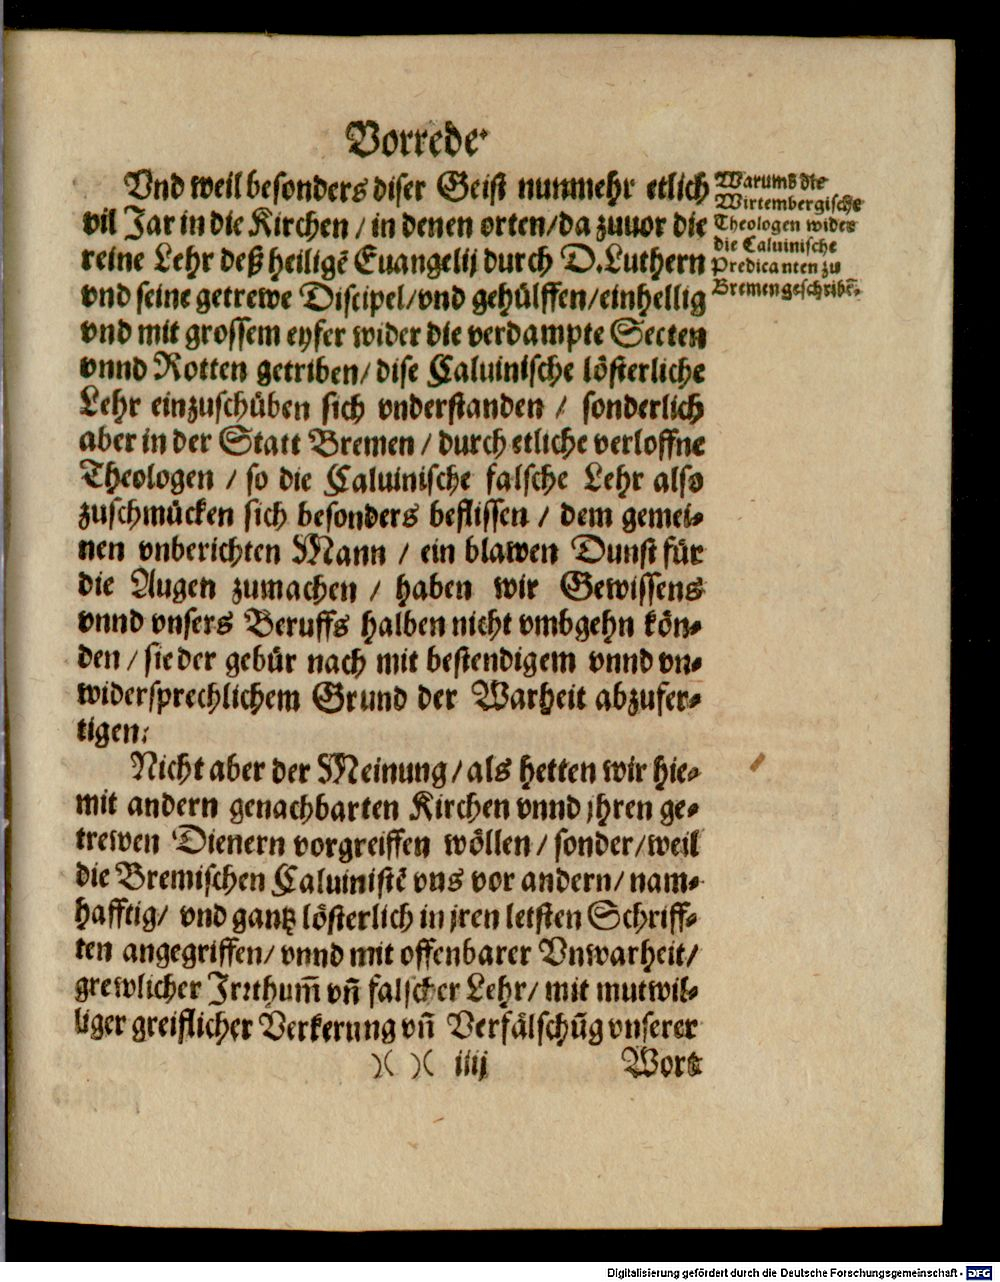 Vorrede.
Vnd weil besonders diser Geist nunmehr etlich
vil Jar in die Kirchen / in denen orten/da zuuor die
reine Lehr deß heiligẽ Euangelij durch D.Luthern
vnd seine getrewe Discipel/vnd gehülffen/einhellig
vnd mit grossem eyfer wider die verdampte Secten
vnnd Rotten getriben/ dise Caluinische lösterliche
Lehr einzuschüben sich vnderstanden / sonderlich
aber in der Statt Bremen / durch etliche verloffne
Theologen / so die Caluinische falsche Lehr also
zuschmücken sich besonders beflissen / dem gemei-
nen vnberichten Mann / ein blawen Dunst für
die Augen zumachen / haben wir Gewissens
vnnd vnsers Beruffs halben nicht vmbgehn kön-
den / sie der gebür nach mit bestendigem vnnd vn-
widersprechlichem Grund der Warheit abzufer-
tigen:
Nicht aber der Meinung/ als hetten wir hie-
mit andern genachbarten Kirchen vnnd jhren ge-
trewen Dienern vorgreiffen wöllen / sonder/weil
die Bremischen Caluinistẽ vns vor andern/ nam-
hafftig/ vnd gantz lösterlich in jren letsten Schriff-
ten angegriffen/ vnnd mit offenbarer Vnwarheit/
grewlicher Irrthum̃ vñ falscher Lehr/ mit mutwil-
liger greiflicher Verkerung vñ Verfälschũg vnserer
)( )( iiij Wort
Warumb die
Wirtembergische
Theologen wider
die Caluinische
Predicanten zu
Bremen geschribẽ.
Digitalisierung gefördert durch die Deutsche Forschungsgemeinschaft - DFG